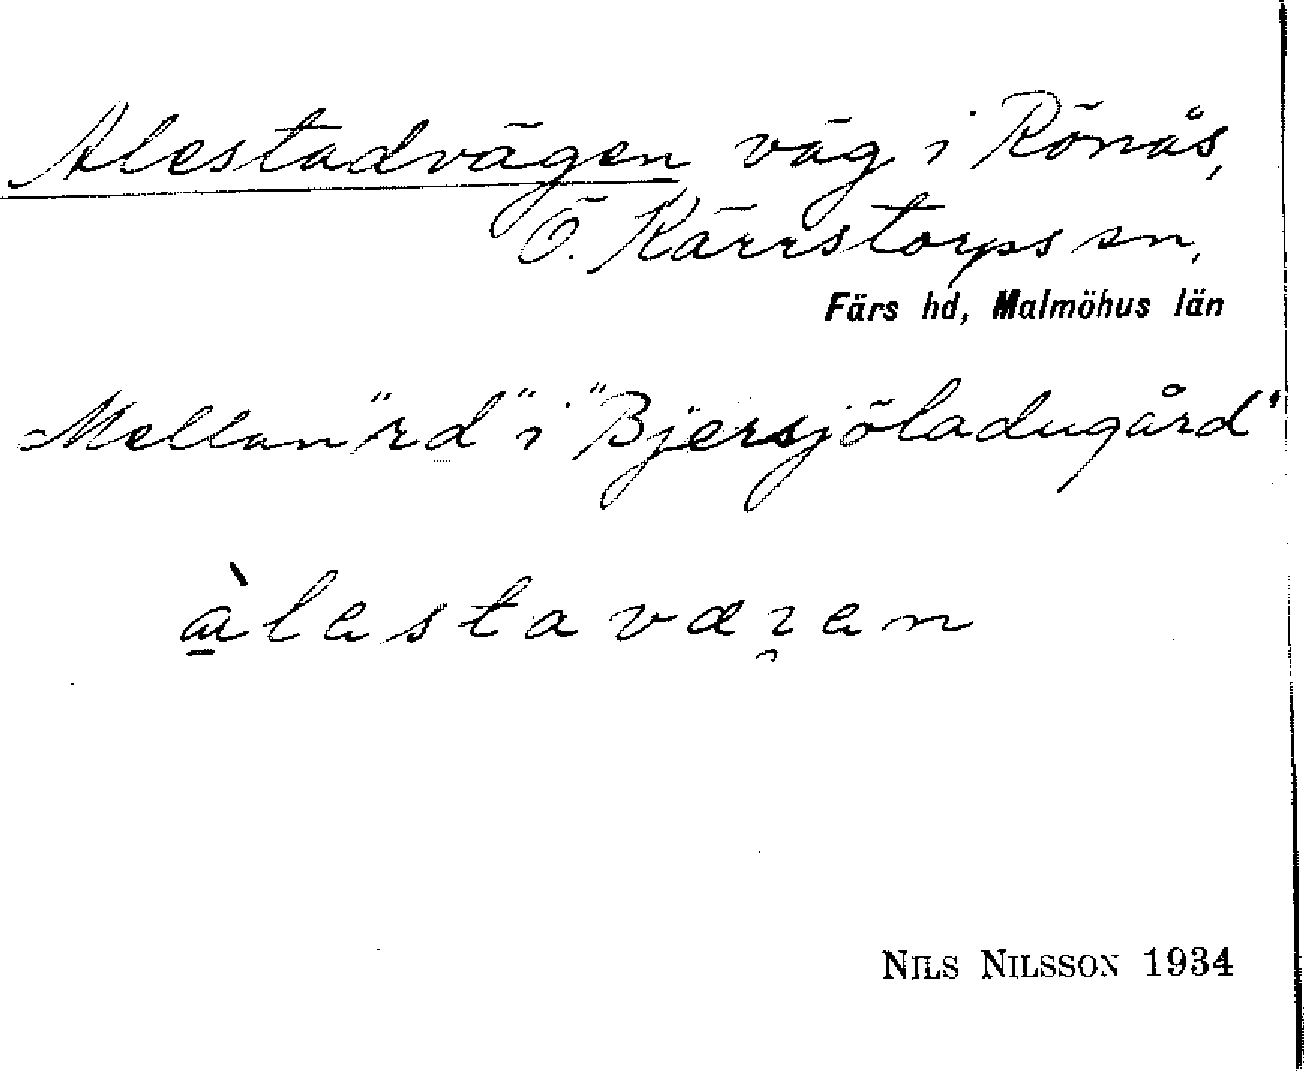 Alestadvägen väg i Rönås,
Ö. Kärrstorps sn,
Färs hd, Malmöhus län
Mellan "rd" i "Bjersjöladugård"
àlestavæꝛen
NILS NILSSON 1934